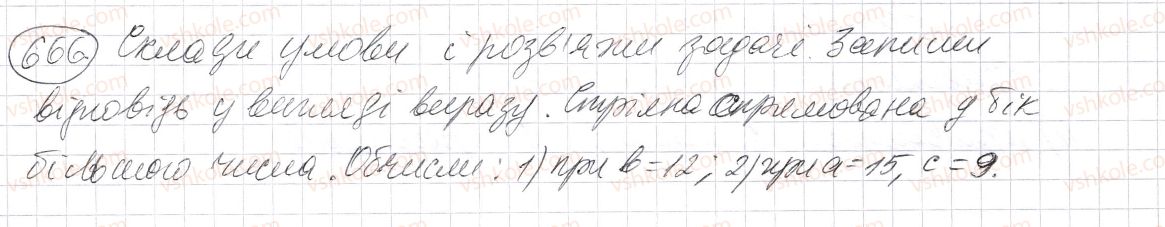 666 Склади умови і розв'яжи задачі. Запиши
відповідь у вигляді виразу. Стрілка спрямована у бік
більшого числа. Обчисли: 1) при b=12; 2) при a=15, c=9.